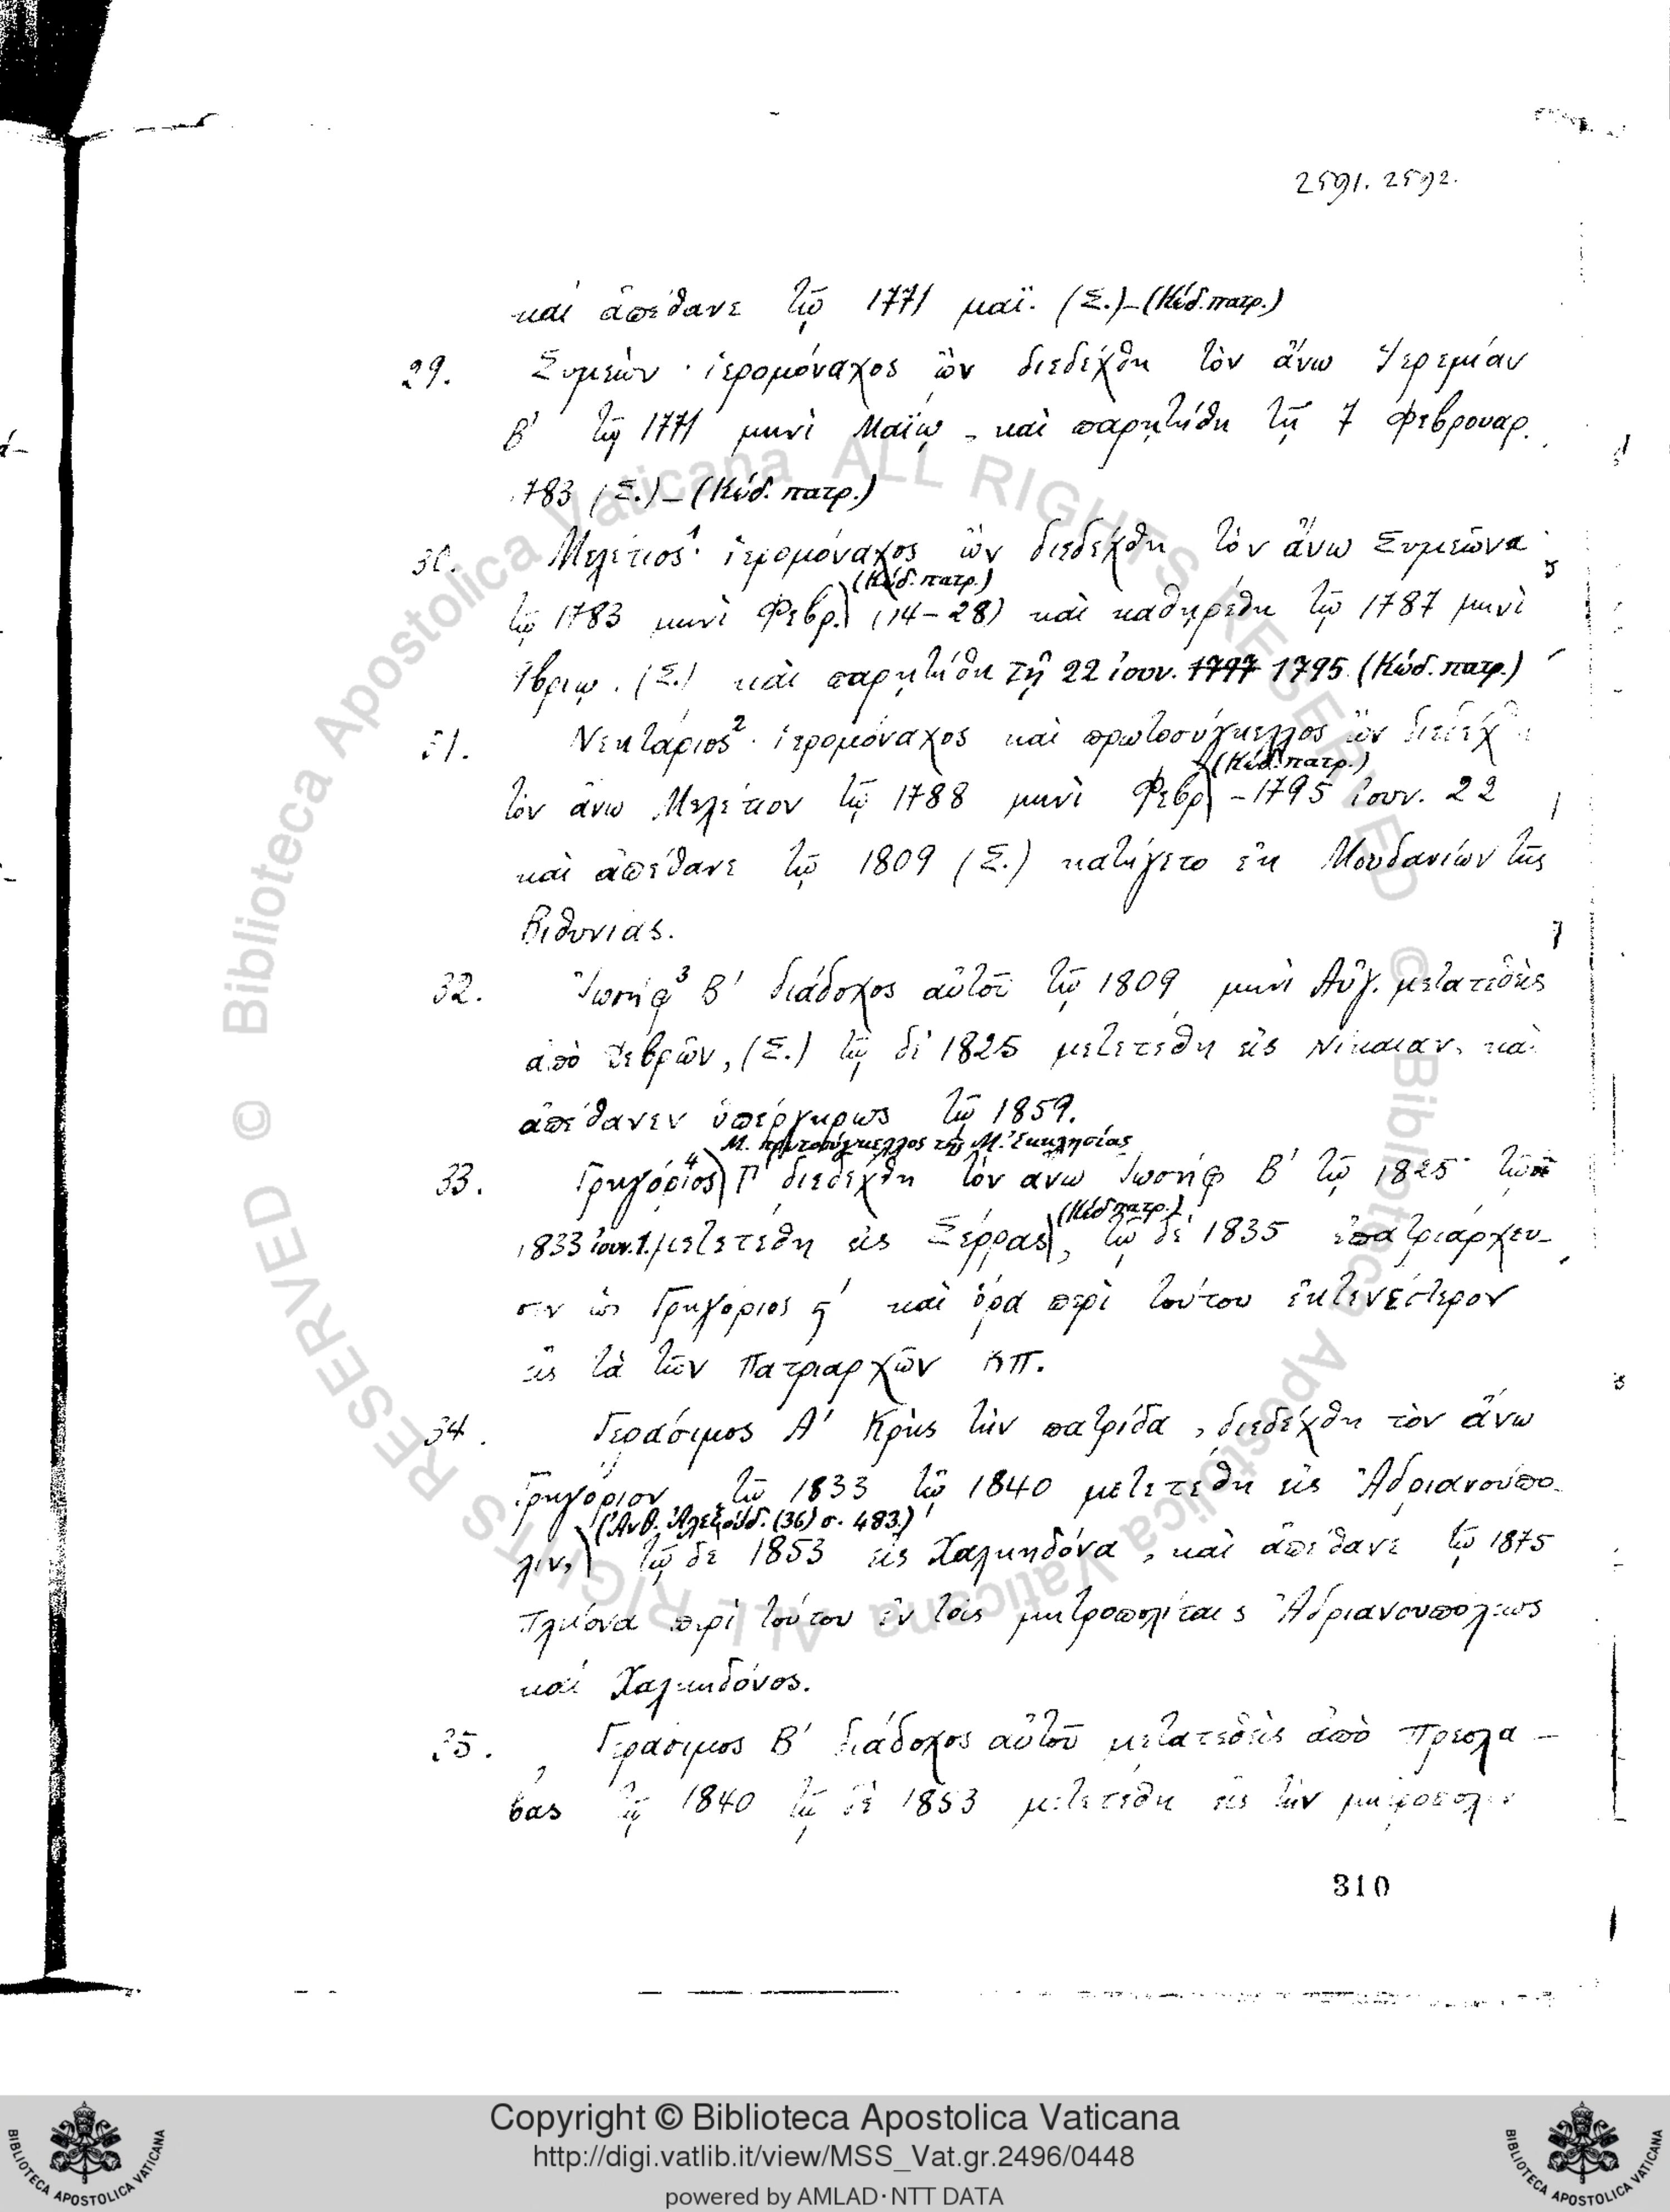 2591. 2592.
καὶ ἀπέθανε τῷ 1771 μαΐ. (Σ.)–(Κώδ. πατρ.)
29. Συμεὼν · ἱερομόναχος ὢν διεδέχθη τὸν ἄνω Ἱερεμίαν
Β' τῷ 1771 μηνὶ Μαΐῳ, καὶ παρητήθη τῇ 7 Φεβρουαρ.
1783 (Σ.)–(Κώδ. πατρ.)
30. Μελέτιος¹· ἱερομόναχος ὢν διεδέχθη τὸν ἄνω Συμεῶνα
(Κώδ. πατρ.)
τῷ 1783 μηνὶ Φεβρ. (14–28) καὶ καθῃρέθη τῷ 1787 μηνὶ
(Σ.) καὶ παρητήθη τῇ 22 ἰουν. 1797 1795. (Κώδ. πατρ.)
31. Νεκτάριος²· ἱερομόναχος καὶ πρωτοσύγκελλος ὢν διεδέχθη
(Κώδ. πατρ.)
τὸν ἄνω Μελέτιον τῷ 1788 μηνὶ Φεβρ – 1795 Ἰουν. 22
καὶ ἀπέθανε τῷ 1809 (Σ.) κατήγετο ἐκ Μουδανίων τῆς
Βιθυνίας.
32. Ἰωσήφ³ Β' διάδοχος αὐτοῦ τῷ 1809 μηνὶ Αὐγ. μετατεθεὶς
ἀπὸ Δεβρῶν, (Σ.) τῷ δὲ 1825 μετετέθη εἰς Νίκαιαν, καὶ
ἀπέθανεν ὑπέργηρως τῷ 1859.
Μ. πρωτοσύγκελλος τῆς Μ. Ἐκκλησίας
33. Γρηγόριος⁴ Γ' διεδέχθη τὸν ἄνω Ἰωσὴφ Β' τῷ 1825· τῷ
(Κώδ πατρ.)
1833 ἰουν. 1. μετετέθη εἰς Σέρρας, τῷ δὲ 1835 ἐπατριάρχευ–
σεν ὡς Γρηγόριος ϛ' καὶ ὅρα περὶ τούτου ἐκτενέστερον
εἰς τὰ τῶν Πατριαρχῶν ΚΠ.
34. Γεράσιμος Α' Κρὴς τὴν πατρίδα, διεδέχθη τὸν ἄνω
Γρηγόριον τῷ 1833 τῷ 1840 μετετέθη εἰς Ἀδριανούπο–
(Ἀνθ. Ἀλεξούδ. (36) σ. 483.)
λιν, τῷ δὲ 1853 εἰς Χαλκηδόνα, καὶ ἀπέθανε τῷ 1875
πλείονα περὶ τούτου ἐν τοῖς μητροπολίταις Ἀδριανουπόλεως
καὶ Χαλκηδόνος.
35. Γεράσιμος Β' διάδοχος αὐτοῦ μετατεθεὶς ἀπὸ Πρεσλα–
βας τῷ 1840 τῷ δὲ 1853 μετετέθη εἰς τὴν μητρόπολιν
310
© Biblioteca Apostolica Vaticana ALL RIGHTS RESERVED © Biblioteca Apostolica Vaticana ALL RIGHTS RESERVED
Copyright © Biblioteca Apostolica Vaticana
http://digi.vatlib.it/view/MSS_Vat.gr.2496/0448
powered by AMLAD·NTT DATA
BIBLIOTECA APOSTOLICA VATICANA
BIBLIOTECA APOSTOLICA VATICANA